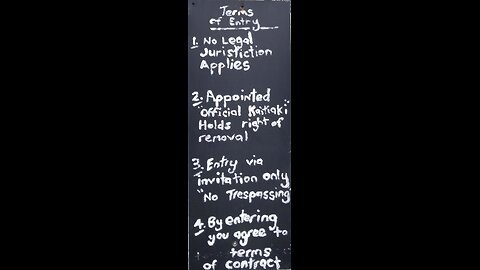 Terms
of Entry
1. No Legal
Juristiction
Applies
2. Appointed
"Official Kaitiaki"
Holds right of
removal
3. Entry via
invitation only
"No Trespassing"
4. By entering
you agree to
terms
of contract